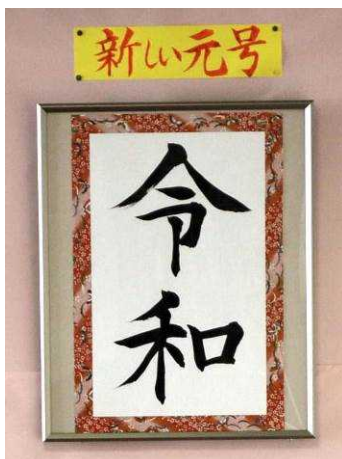 新しい元号
令
和